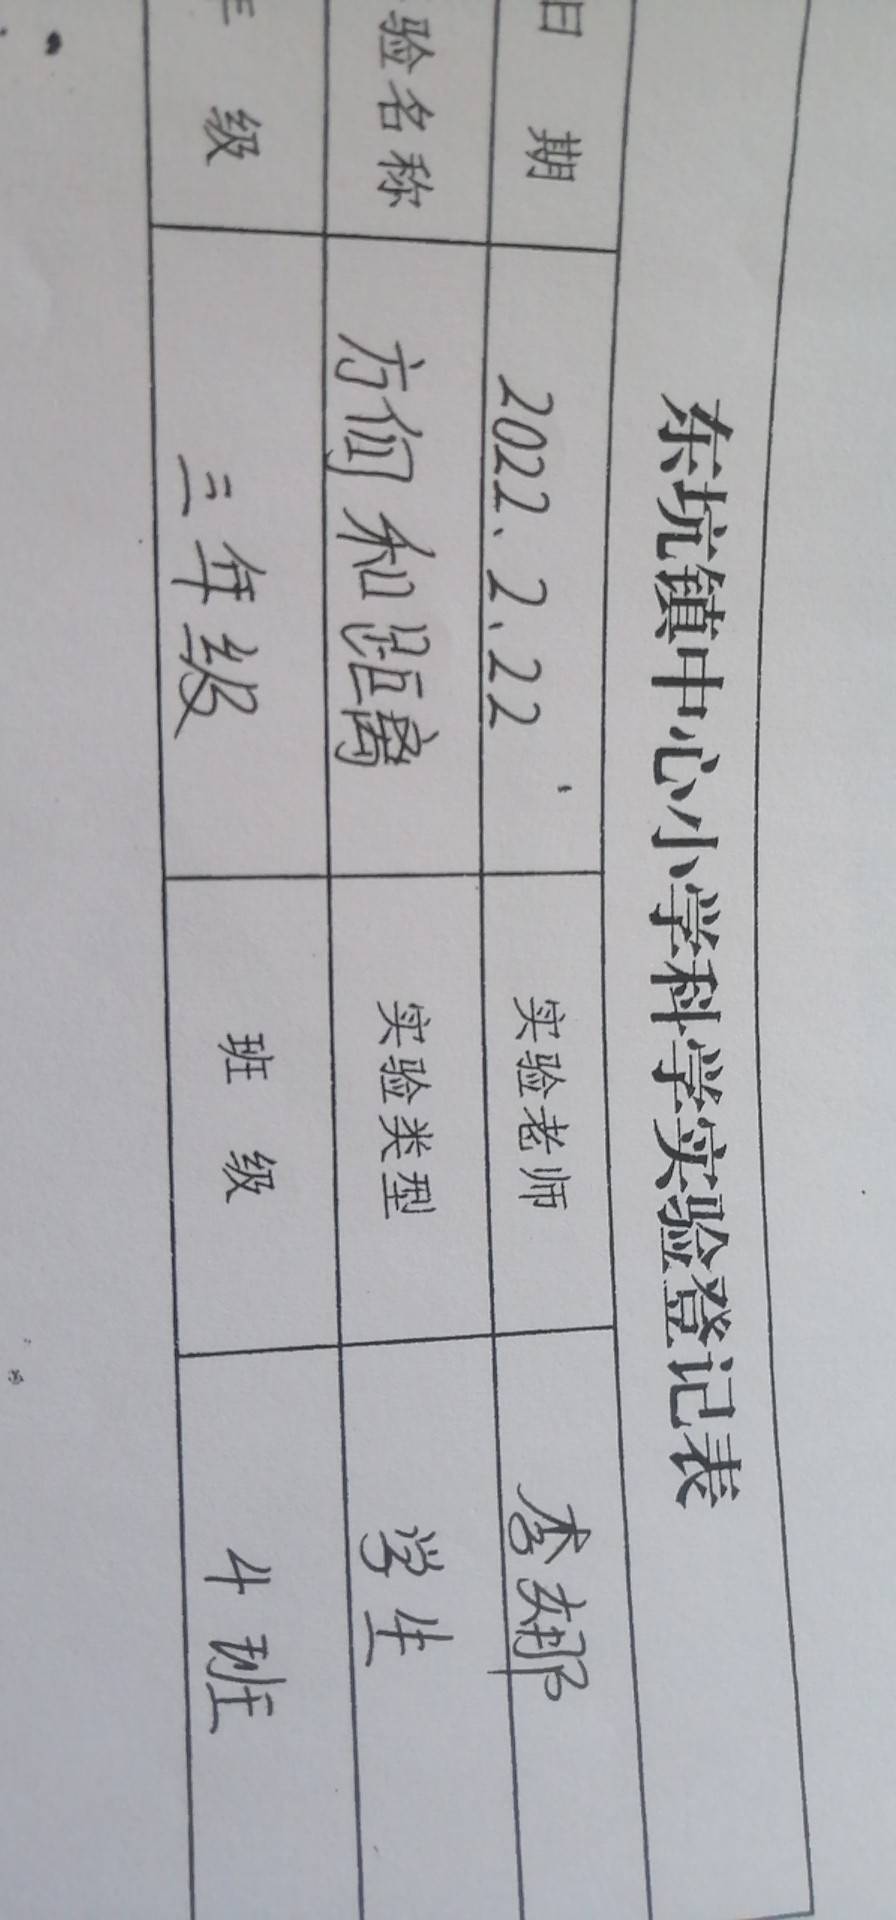 东坑镇中心小学科学实验登记表
日 期 2022、2、22 实验老师 李娜
验名称 方向和距离 实验类型 学生
年 级 三年级 班 级 4班